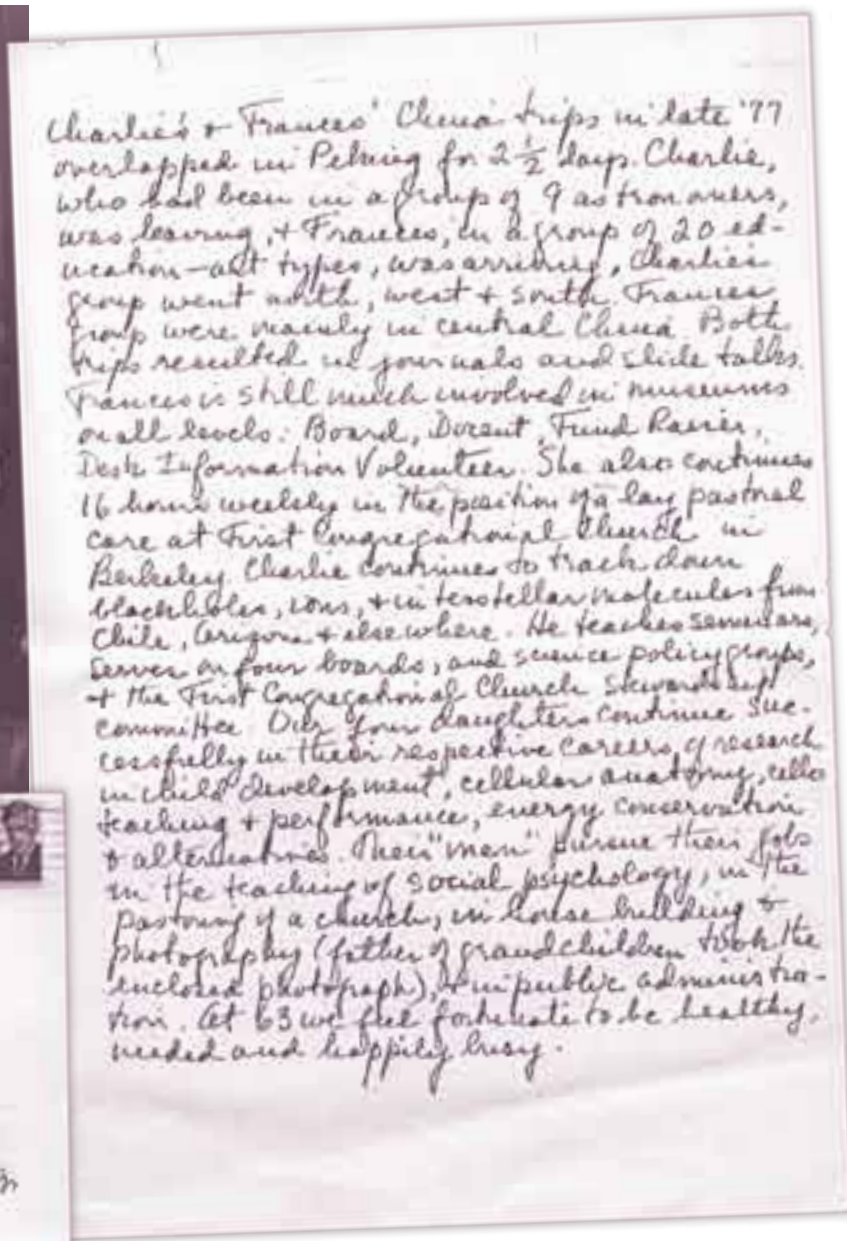 Charlie's + Frances' China trips in late '77
overlapped in Peking for 2 1/2 days. Charlie,
who had been in a group of 9 astronomers,
was leaving, + Frances, in a group of 20 ed-
ucation-art types, was arriving, Charlie's
group went north, west + south. Frances
group were mainly in central China. Both
trips resulted in journals and slide talks.
Frances is still much involved in museums
on all levels: Board, Docent, Fund Raiser,
Desk Information Volunteer. She also continues
16 hours weekly in the position of a lay pastoral
care at First Congregational Church in
Berkeley. Charlie continues to track down
blackholes, ions, + interstellar molecules from
Chile, Arizona + elsewhere. He teaches seminars,
serves on four boards, and science policy groups,
+ the First Congregational Church Stewardship
committee. Our four daughters continue suc-
cessfully in their respective careers, of research
in child development, cellular anatomy, cello
teaching + performance, energy conservation
+ alternatives. Their "men" pursue their jobs
in the teaching of social psychology, in the
pastoring of a church, in house building +
photography (father of grandchildren took the
enclosed photograph), + in public administra-
tion. At 63 we feel fortunate to be healthy,
needed and happily busy.